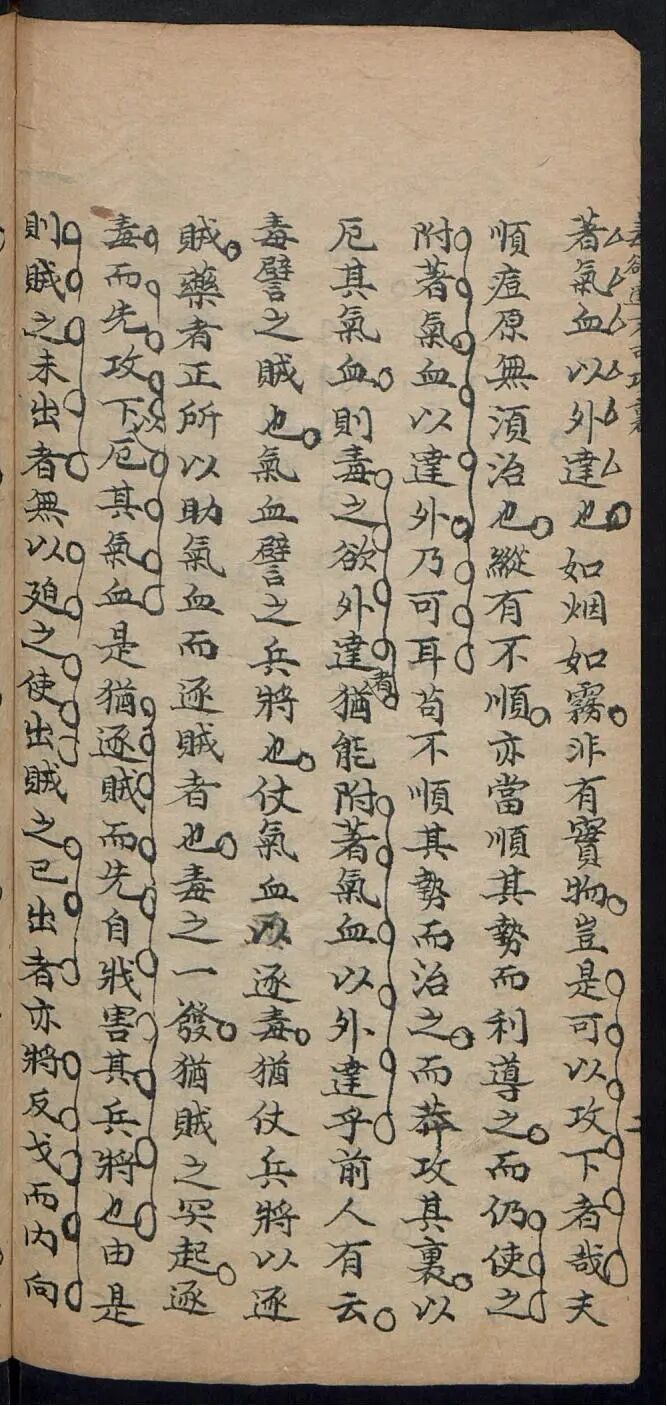 毒欲達不可攻裏
二
著氣血以外達也如烟如霧非有實物豈是可以攻下者哉夫
順痘原無湏治也縱有不順亦當順其勢而利導之而仍使之
附著氣血以達外乃可耳苟不順其勢而治之而莽攻其裏以
厄其氣血則毒之欲外達者猶能附著氣血以外達乎前人有云
毒譬之賊也氣血譬之兵將也仗氣血以逐毒猶仗兵將以逐
賊藥者正所以助氣血而逐賊者也毒之一發猶賊之突起逐
毒而先攻下以厄其氣血是猶逐賊而先自戕害其兵將也由是
則賊之未出者無以廹之使出賊之已出者亦將反戈而內向